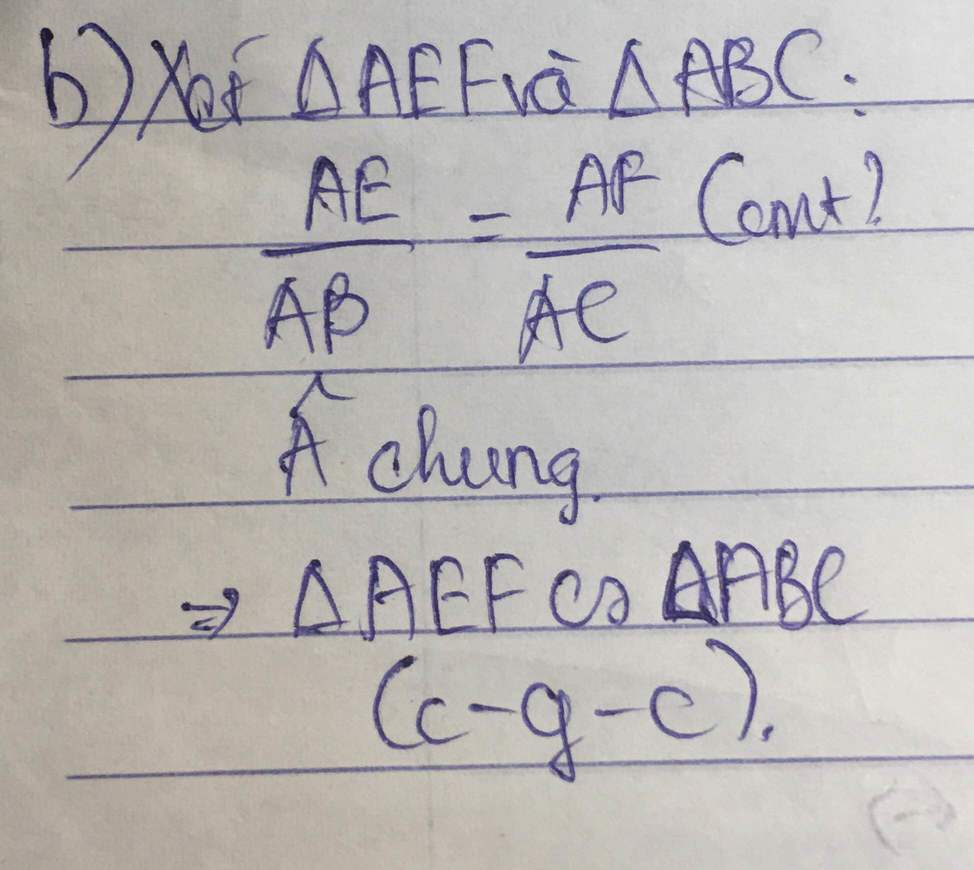 b) Xét ΔAEF và ΔABC:
AE/AB = AF/AC (cmt)
 chung.
⇒ ΔAEF ∽ ΔABC
(c-g-c).